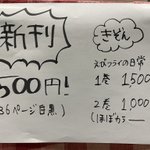 新刊
500円!
36ページ 白黒
きどん
えびフライの日常
1巻 1500
2巻 1000
(ほぼカラー